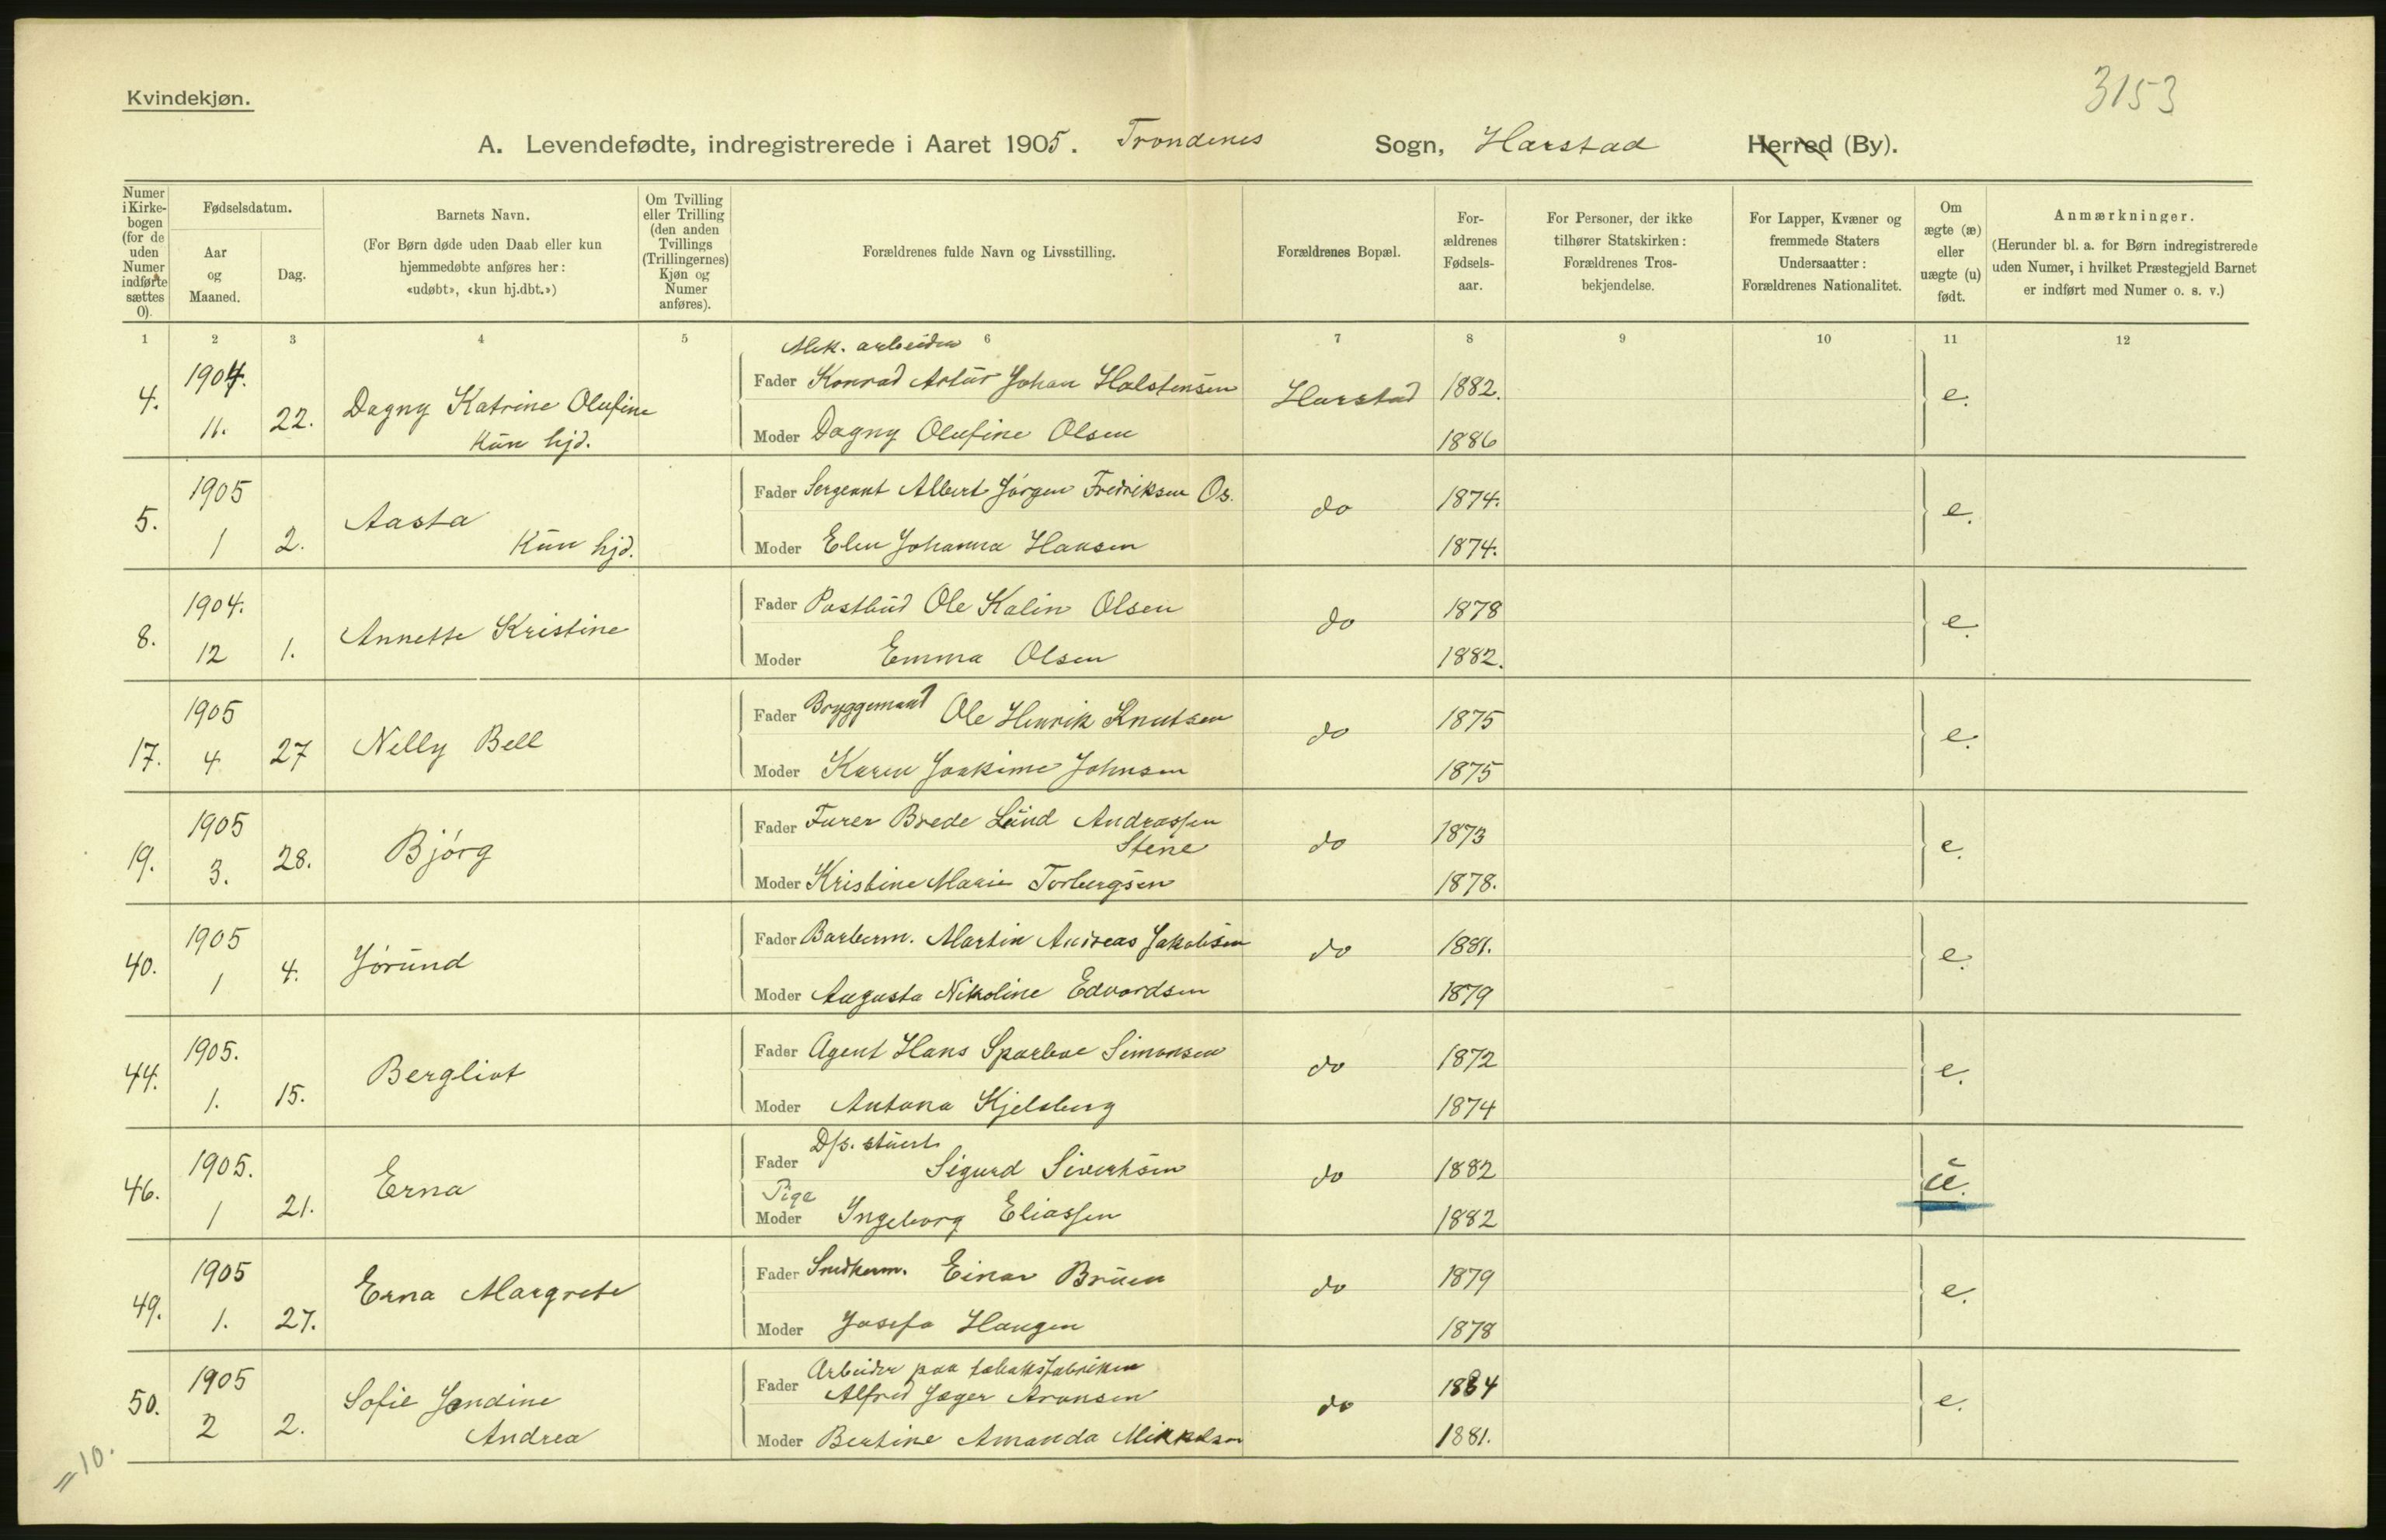 3153
Kvindekjøn.
A. Levendefødte, indregistrerede i Aaret 1905. Trondenes Sogn, Harstad Herred (By).
Numer i Kirke-bogen (for de uden Numer indførte sættes 0).
Fødselsdatum.
Aar og Maaned.
Dag.
Barnets Navn.
(For Børn døde uden Daab eller kun hjemmedøbte anføres her: «udøbt», «kun hj.dbt.»)
Om Tvilling eller Trilling (den anden Tvillings (Trillingernes) Kjøn og Numer anføres).
Forældrenes fulde Navn og Livsstilling.
Forældrenes Bopæl.
For-ældrenes Fødsels-aar.
For Personer, der ikke tilhører Statskirken: Forældrenes Tros-bekjendelse.
For Lapper, Kvæner og fremmede Staters Undersaatter: Forældrenes Nationalitet.
Om ægte (æ) eller uægte (u) født.
Anmærkninger.
(Herunder bl. a. for Børn indregistrerede uden Numer, i hvilket Præstegjeld Barnet er indført med Numer o. s. v.)
1 2 3 4 5 6 7 8 9 10 11 12
Mek. arbeider
4. 1904. 11. 22. Dagny Katrine Olufine Kun hjd.
Fader Konrad Artur Johan Halstensen Harstad 1882. e.
Moder Dagny Olufine Olsen 1886
5. 1905 1 2. Aasta Kun hjd.
Fader Sergeant Albert Jørgen Fredriksen Os. do 1874. e.
Moder Elen Johanna Hansen 1874.
8. 1904. 12 1. Annette Kristine
Fader Postbud Ole Kalin Olsen do 1878 e.
Moder Emma Olsen 1882.
17. 1905 4 27 Nelly Bell
Fader Bryggemand Ole Henrik Knutsen do 1875 e.
Moder Karen Joakime Johnsen 1875
19. 1905 3. 28. Bjørg
Fader Furer Brede Lund Andreassen Stene do 1873 e.
Moder Kristine Marie Torbergsen 1878.
40. 1905 1 4. Jørund
Fader Barberm. Martin Andreas Jakobsen do 1881. e.
Moder Augusta Nikoline Edvardsen 1879
44. 1905. 1. 15. Bergliot
Fader Agent Hans Sparboe Simonsen do 1872 e.
Moder Antona Kjelsberg 1874
46. 1905. 1 21. Erna
Fader D/s. stuert Sigurd Sivertsen do 1882 u.
Pige
Moder Ingeborg Eliassen 1882
49. 1905 1. 27. Erna Margrete
Fader Snedkerm. Einar Bruen do 1879 e.
Moder Josefa Haugen 1878
50. 1905 2 2. Sofie Jendine Andrea
Fader Arbeider paa tobaksfabriken
Alfred Jæger Aronsen do 1884 e.
Moder Bertine Amanda Mikkelsen 1881.
10.